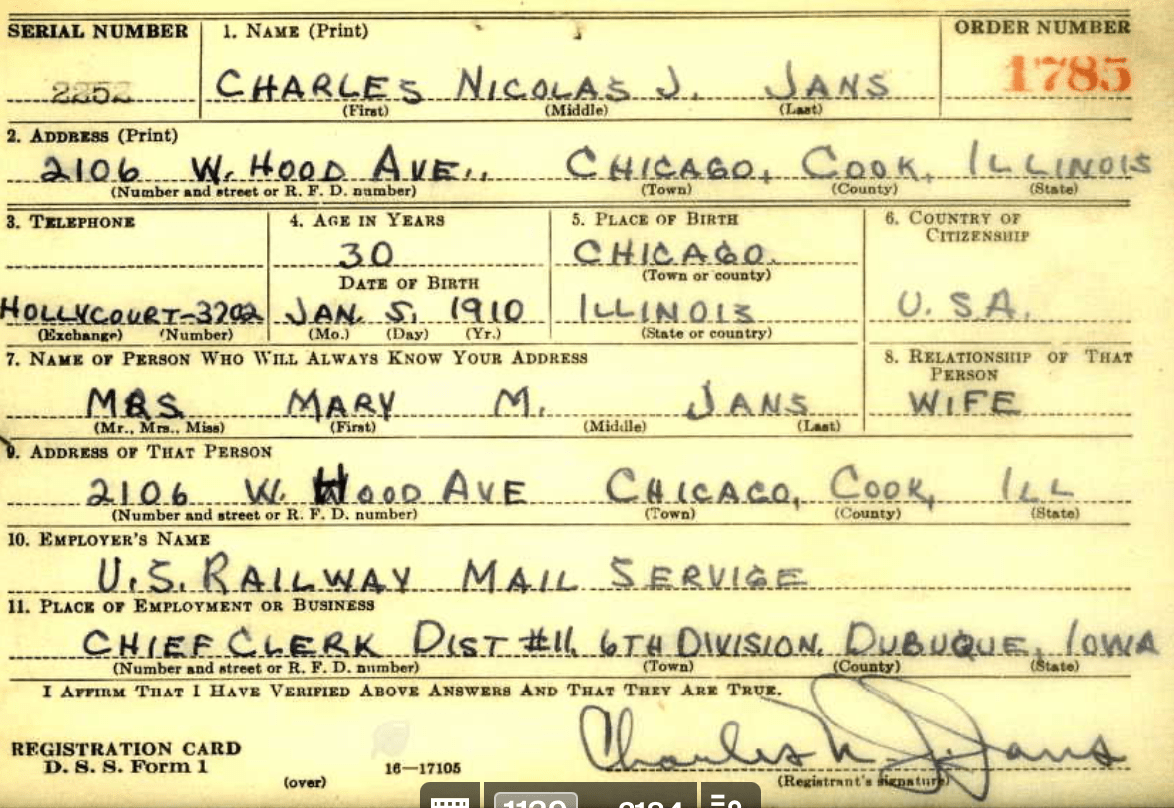 SERIAL NUMBER 1. NAME (Print) ORDER NUMBER
2252 CHARLES NICOLAS J. JANS 1785
(First) (Middle) (Last)
2. ADDRESS (Print)
2106 W. HOOD AVE., CHICAGO, COOK, ILLINOIS
(Number and street or R. F. D. number) (Town) (County) (State)
3. TELEPHONE 4. AGE IN YEARS 5. PLACE OF BIRTH 6. COUNTRY OF CITIZENSHIP
30 CHICAGO
DATE OF BIRTH (Town or county)
HOLLYCOURT-3202 JAN. 5, 1910 ILLINOIS U.S.A.
(Exchange) (Number) (Mo.) (Day) (Yr.) (State or country)
7. NAME OF PERSON WHO WILL ALWAYS KNOW YOUR ADDRESS 8. RELATIONSHIP OF THAT PERSON
MRS MARY M. JANS WIFE
(Mr., Mrs., Miss) (First) (Middle) (Last)
9. ADDRESS OF THAT PERSON
2106 W. HOOD AVE CHICAGO, COOK, ILL
(Number and street or R. F. D. number) (Town) (County) (State)
10. EMPLOYER'S NAME
U.S. RAILWAY MAIL SERVICE
11. PLACE OF EMPLOYMENT OR BUSINESS
CHIEF CLERK DIST #11, 6TH DIVISION, DUBUQUE, IOWA
(Number and street or R. F. D. number) (Town) (County) (State)
I AFFIRM THAT I HAVE VERIFIED ABOVE ANSWERS AND THAT THEY ARE TRUE.
Charles N. J. Jans
REGISTRATION CARD
D. S. S. Form 1 (over) 16—17105 (Registrant's signature)